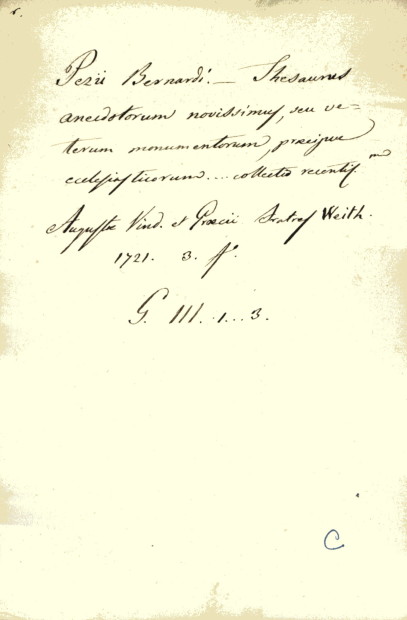 Pezii Bernardi. — Thesaurus
anecdotorum novissimus, seu ve-
terum monumentorum, præcipue
ecclesiasticorum.... collectio recentiss.ma
Augustæ Vind. et Græcii Fratres Weith.
1721. 3. fº.
G. III. 1...3.
C